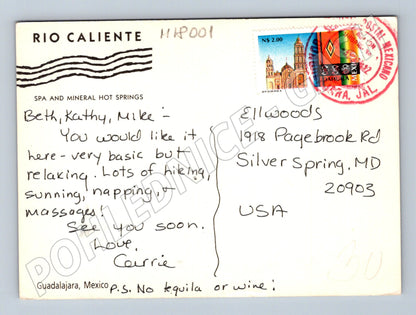 RIO CALIENTE
MHP001
SPA AND MINERAL HOT SPRINGS
Beth, Kathy, Mike -
You would like it
here - very basic but
relaxing. Lots of hiking,
sunning, napping, &
massages!
See you soon.
Love,
Carrie
P.S. No tequila or wine!
Guadalajara, Mexico
N$ 2.00
POSTAL MEXICANO
JARA, JAL.
Ellwoods
1918 Pagebrook Rd
Silver Spring, MD
20903
USA
POHLEDNICE